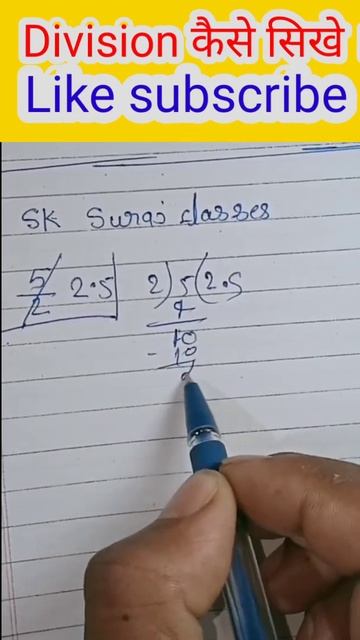 Division कैसे सिखे
Like subscribe
SK Suraj classes
5/2 2.5 2)5(2.5
4
10
- 10
0